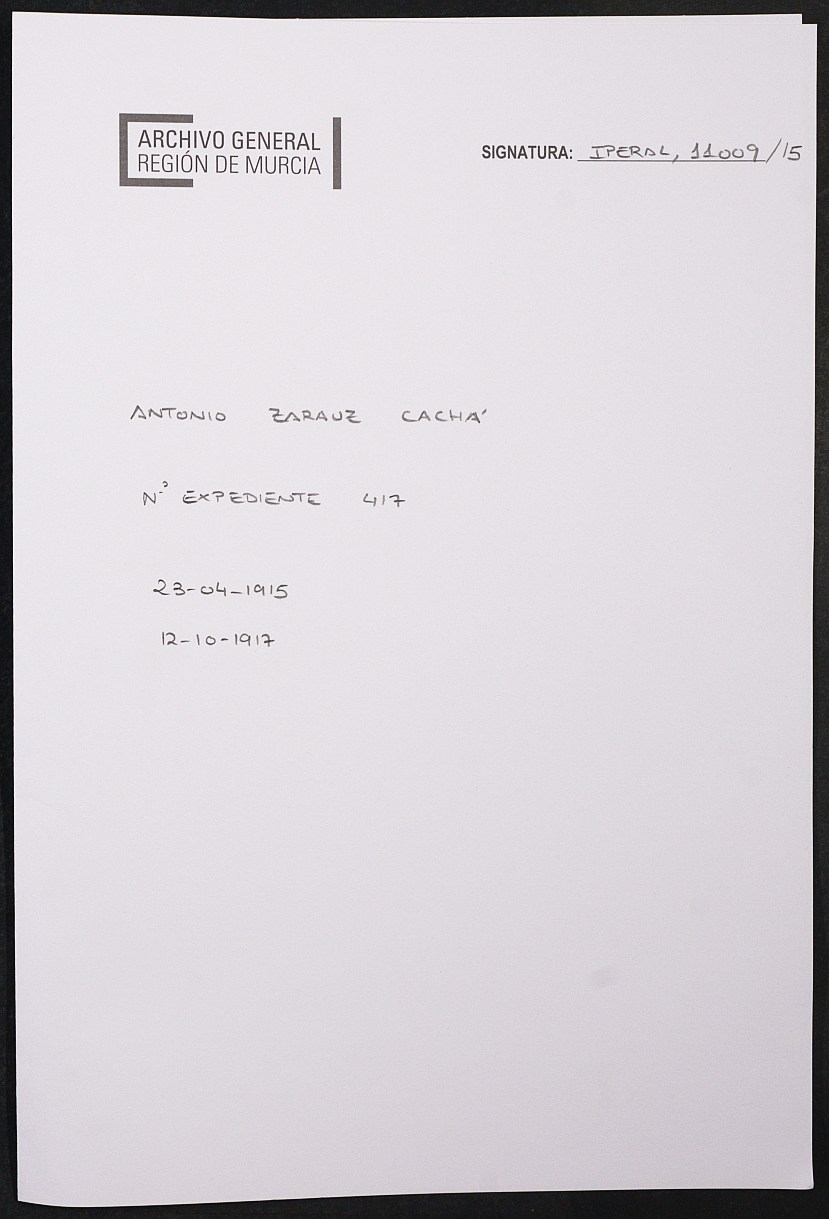 ARCHIVO GENERAL
REGIÓN DE MURCIA
SIGNATURA: IPERAL, 11009/15
ANTONIO ZARAUZ CACHÁ
Nº EXPEDIENTE 417
23-04-1915
12-10-1917